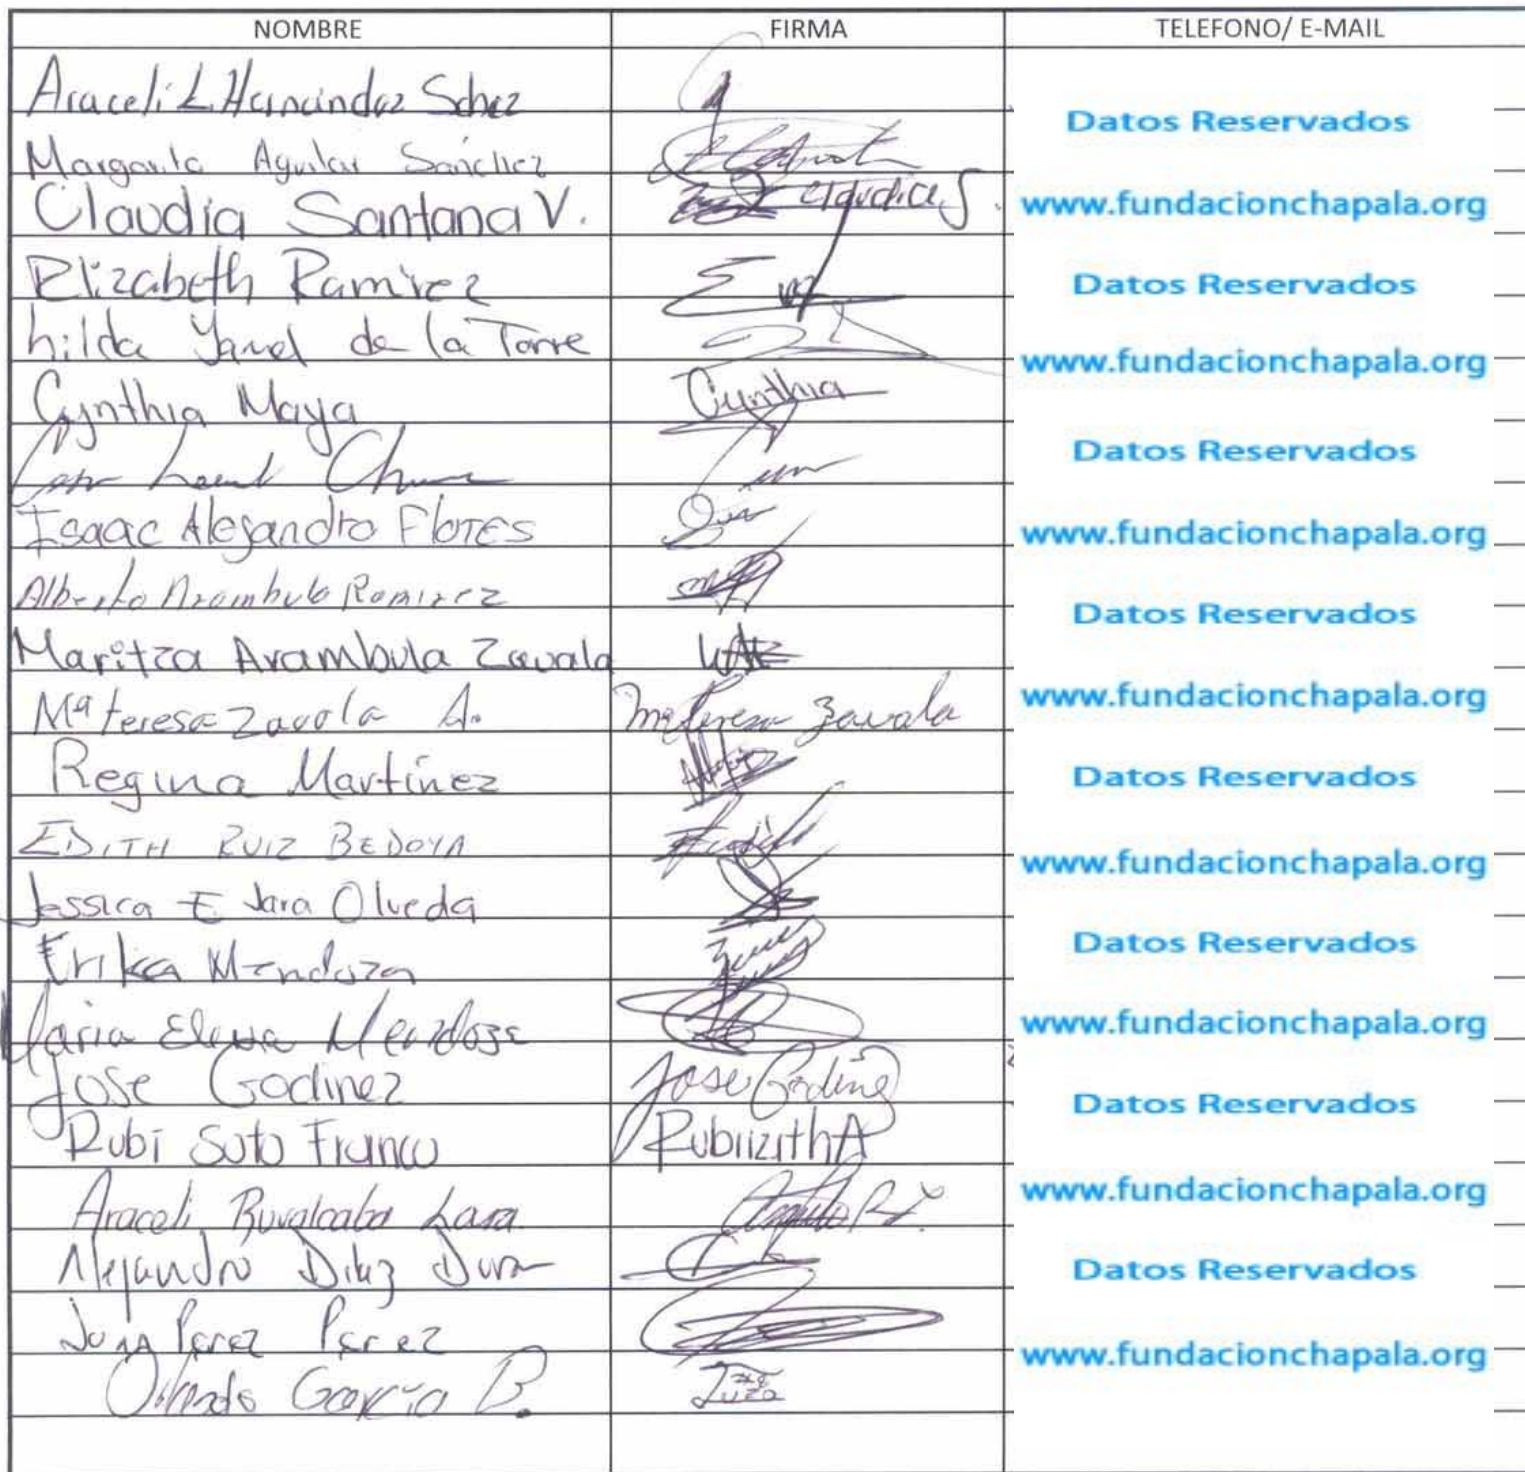 NOMBRE FIRMA TELEFONO/ E-MAIL
Araceli L. Hernández Schez
Datos Reservados
Margarita Aguilar Sánchez
Claudia Santana V. Claudia S. www.fundacionchapala.org
Elizabeth Ramírez Datos Reservados
hilda Yanel de la Torre
www.fundacionchapala.org
Cynthia Maya Cynthia
Datos Reservados
Isaac Alejandro FlorES www.fundacionchapala.org
Alberto Arambula Ramirez
Datos Reservados
Maritza Arambula Zavala
Mª teresa Zavala A. Ma teresa Zavala www.fundacionchapala.org
Regina Martínez Datos Reservados
EDITH RUIZ BEDOYA
www.fundacionchapala.org
Jessica E Jara Olveda
Erika Mendoza Datos Reservados
Maria Elena Mendoza www.fundacionchapala.org
Jose Godinez Jose Godinez
Datos Reservados
Rubi Soto Franco RubiizithA
Araceli Ruvalcaba Lara www.fundacionchapala.org
Alejandro Diaz Duran Datos Reservados
Juan Perez Perez
www.fundacionchapala.org
Orlando García B.